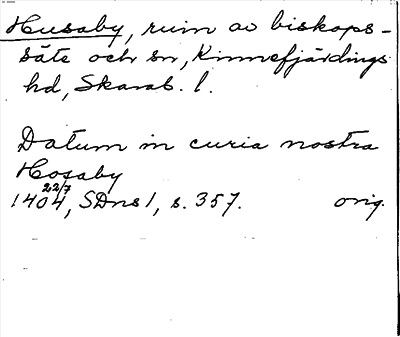 Husaby, ruin av biskops-
säte och sn, Kinnefjärdings
hd, Skarab. l.
Datum in curia nostra
Hosaby
1404 22/7, SDns 1, s. 357. orig.